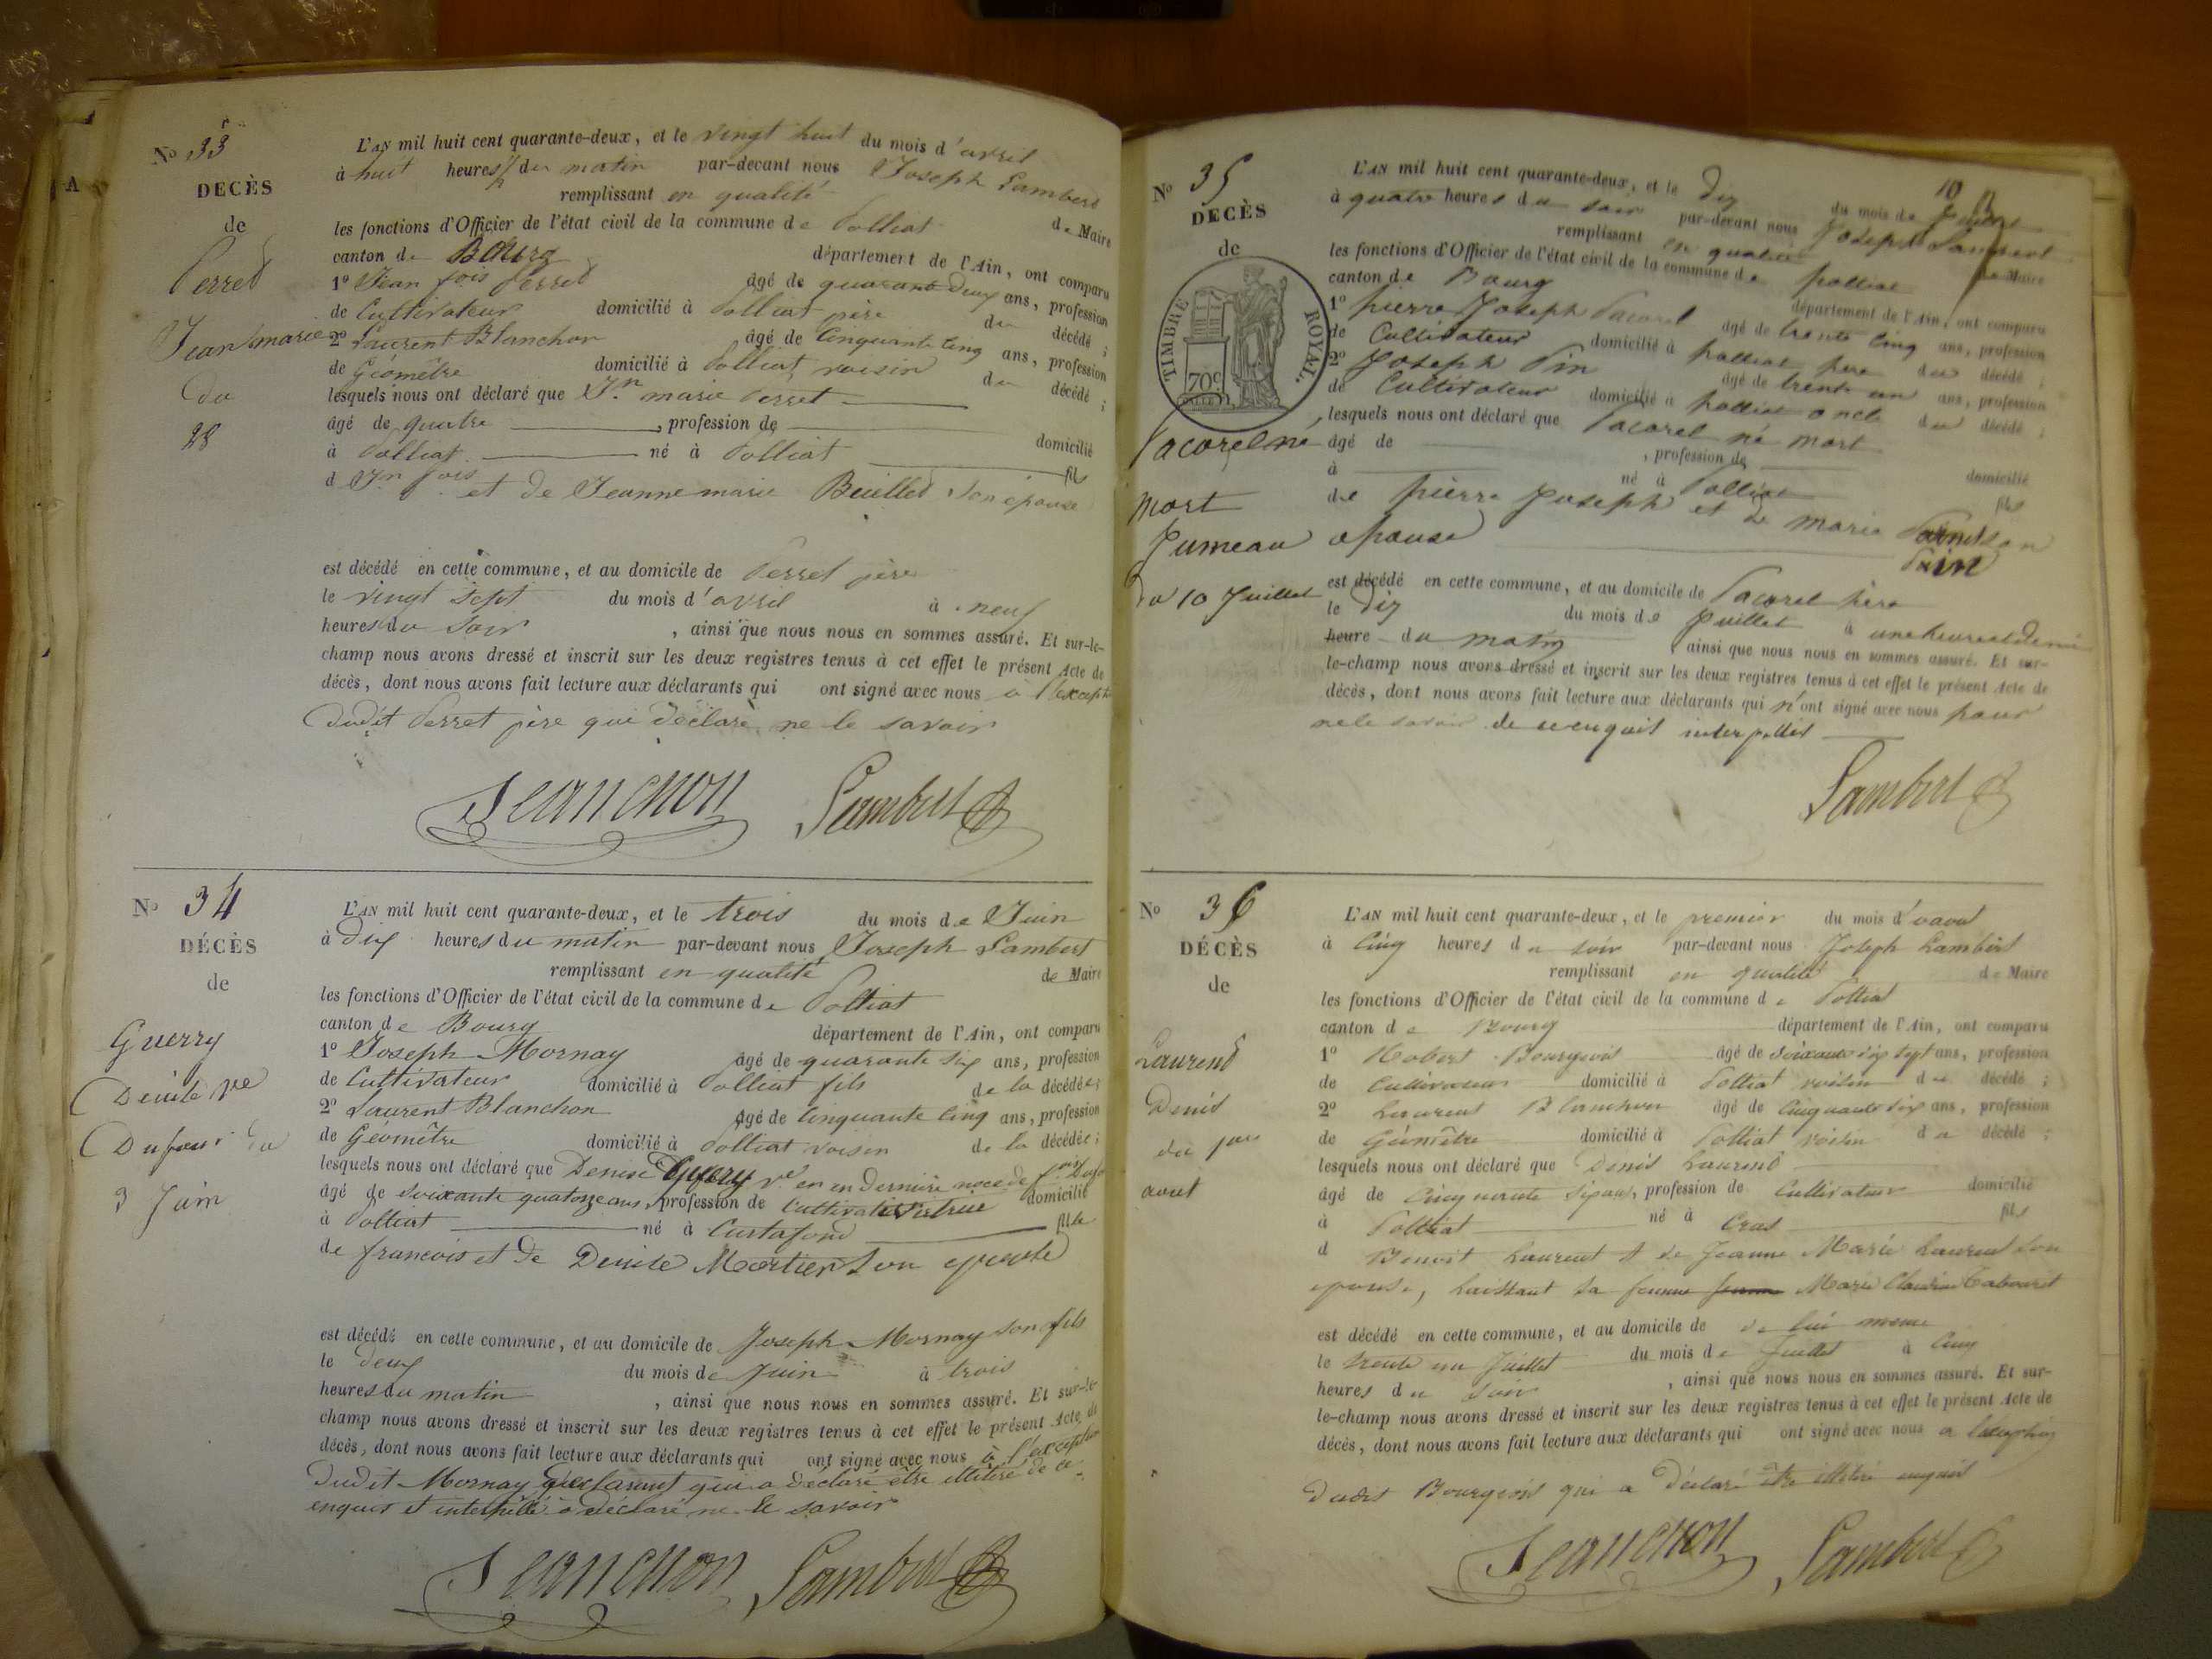 A
N° 33
DECÈS
de
Perret
Jean marie
du
28
L'AN mil huit cent quarante-deux, et le vingt huit du mois d'avril
à huit heures du matin par-devant nous Joseph Lambert
remplissant en qualité de Maire
les fonctions d'Officier de l'état civil de la commune de Polliat
canton de Bourg département de l'Ain, ont comparu
1° Jean fois Perret âgé de quarante deux ans, profession
de Cultivateur domicilié à Polliat père du décédé ;
2° Laurent Blanchon âgé de Cinquante Cinq ans, profession
de Géomètre domicilié à Polliat voisin du décédé ;
lesquels nous ont déclaré que Jn marie Perret
âgé de quatre , profession de domicilié
à Polliat né à Polliat fils
d Jn fois et de Jeanne marie Beuillet son épouse
est décédé en cette commune, et au domicile de Perret père
le vingt sept du mois d'avril à neuf
heures du Soir , ainsi que nous nous en sommes assuré. Et sur-le-
champ nous avons dressé et inscrit sur les deux registres tenus à cet effet le présent Acte de
décès, dont nous avons fait lecture aux déclarants qui ont signé avec nous à l'except
dudit Perret père qui déclare ne le savoir
Lambert
N° 34
DÉCÈS
de
Guerry
Denise ve
Dufour du
3 Juin
L'AN mil huit cent quarante-deux, et le trois du mois de Juin
à dix heures du matin par-devant nous Joseph Lambert
remplissant en qualité de Maire
les fonctions d'Officier de l'état civil de la commune de Polliat
canton de Bourg département de l'Ain, ont comparu
1° Joseph Mornay âgé de quarante six ans, profession
de Cultivateur domicilié à Polliat fils de la décédée ;
2° Laurent Blanchon âgé de Cinquante Cinq ans, profession
de Géomètre domicilié à Polliat voisin de la décédée ;
lesquels nous ont déclaré que Denise Guerry ve en en dernière noce de fois
âgé de soixante quatorze ans, profession de domicilié
à Polliat né à Curtafond fille
de francois et de Denise Mortier son épouse
est décédé en cette commune, et au domicile de Joseph Mornay son fils
le deux du mois de Juin à trois
heures du matin , ainsi que nous nous en sommes assuré. Et sur-le-
champ nous avons dressé et inscrit sur les deux registres tenus à cet effet le présent Acte de
décès, dont nous avons fait lecture aux déclarants qui ont signé avec nous à l'exception
dudit Mornay déclarant qui a déclaré être illitéré de ce
enquis et interpellé a déclaré ne le savoir
Lambert
N° 35
DECÈS
de
TIMBRE ROYAL.
70c
Pacorel né
mort
Jumeau
du 10 Juillet
10
L'AN mil huit cent quarante-deux, et le dix du mois de Juillet
à quatre heures du soir par-devant nous Joseph Lambert
remplissant en qualité de Maire
les fonctions d'Officier de l'état civil de la commune de polliat
canton de Bourg département de l'Ain, ont comparu
1° pierre Joseph Pacorel âgé de trente cinq ans, profession
de Cultivateur domicilié à polliat père du décédé ;
2° Joseph Pin âgé de trente un ans, profession
de Cultivateur domicilié à polliat oncle du décédé ;
lesquels nous ont déclaré que Pacorel né mort
âgé de , profession de domicilié
à né à Polliat fils
de pierre Joseph et de marie son
épouse Pain
est décédé en cette commune, et au domicile de Pacorel père
le dix du mois de Juillet à une heure et demie
heure du matin , ainsi que nous nous en sommes assuré. Et sur-
le-champ nous avons dressé et inscrit sur les deux registres tenus à cet effet le présent Acte de
décès, dont nous avons fait lecture aux déclarants qui n'ont signé avec nous pour
ne le savoir de ce enquis interpellés
Lambert
N° 36
DÉCÈS
de
Laurent
Denis
du 1er
aout
L'AN mil huit cent quarante-deux, et le premier du mois d'aout
à Cinq heures du soir par-devant nous Joseph Lambert
remplissant en qualité de Maire
les fonctions d'Officier de l'état civil de la commune de Polliat
canton de Bourg département de l'Ain, ont comparu
1° Robert Bourgeois âgé de soixante dix sept ans, profession
de Cultivateur domicilié à Polliat voisin du décédé ;
2° Laurent Blanchon âgé de Cinquante six ans, profession
de Géomètre domicilié à Polliat voisin du décédé ;
lesquels nous ont déclaré que Denis Laurent
âgé de Cinquante six ans, profession de Cultivateur domicilié
à Polliat né à Cras fils
d Benoit Laurent et de Jeanne Marie Laurent son
épouse, laissant sa femme Marie Claudine Tabouret
est décédé en cette commune, et au domicile de de lui meme
le trente un Juillet du mois de Juillet à Cinq
heures du Soir , ainsi que nous nous en sommes assuré. Et sur-
le-champ nous avons dressé et inscrit sur les deux registres tenus à cet effet le présent Acte de
décès, dont nous avons fait lecture aux déclarants qui ont signé avec nous a lexception
dudit Bourgeois qui a déclaré être illitéré enquis
Lambert